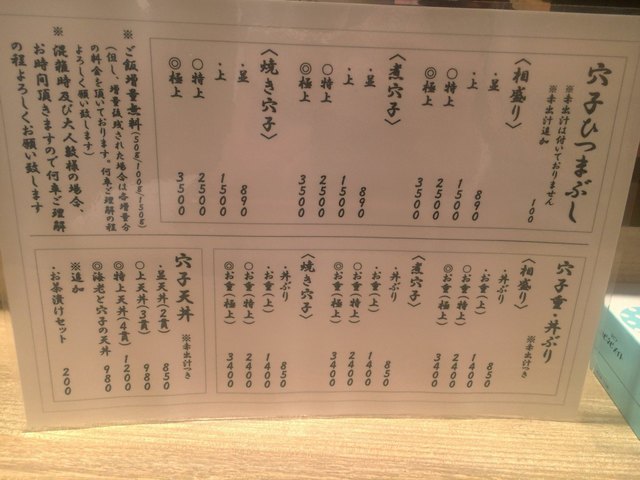 穴子ひつまぶし
※赤出汁は付いておりません
※赤出汁追加 100
〈相盛り〉
・並 890
・上 1500
〇特上 2500
◎極上 3500
〈煮穴子〉
・並 890
・上 1500
〇特上 2500
◎極上 3500
〈焼き穴子〉
・並 890
・上 1500
〇特上 2500
◎極上 3500
※ご飯増量無料(50g、100g、150g)
(但し、増量後残された場合は各増量分
の料金を頂いております。何卒ご理解の程
よろしくお願い致します)
※混雑時及び大人数様の場合、
お時間頂きますので何卒ご理解
の程よろしくお願い致します
穴子重・丼ぶり
※赤出汁つき
〈相盛り〉
・丼ぶり 850
・お重(上) 1400
〇お重(特上) 2400
◎お重(極上) 3400
〈煮穴子〉
・丼ぶり 850
・お重(上) 1400
〇お重(特上) 2400
◎お重(極上) 3400
〈焼き穴子〉
・丼ぶり 850
・お重(上) 1400
〇お重(特上) 2400
◎お重(極上) 3400
穴子天丼 ※赤出汁つき
・並天丼(2貫) 850
〇上天丼(3貫) 980
◎特上天丼(4貫) 1200
◎海老と穴子の天丼 980
※追加
・お茶漬けセット 200